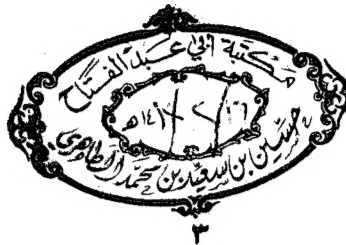 مكتبة أبي عبد الفتاح
حسين بن سعيد بن محمد الطاهري
٣